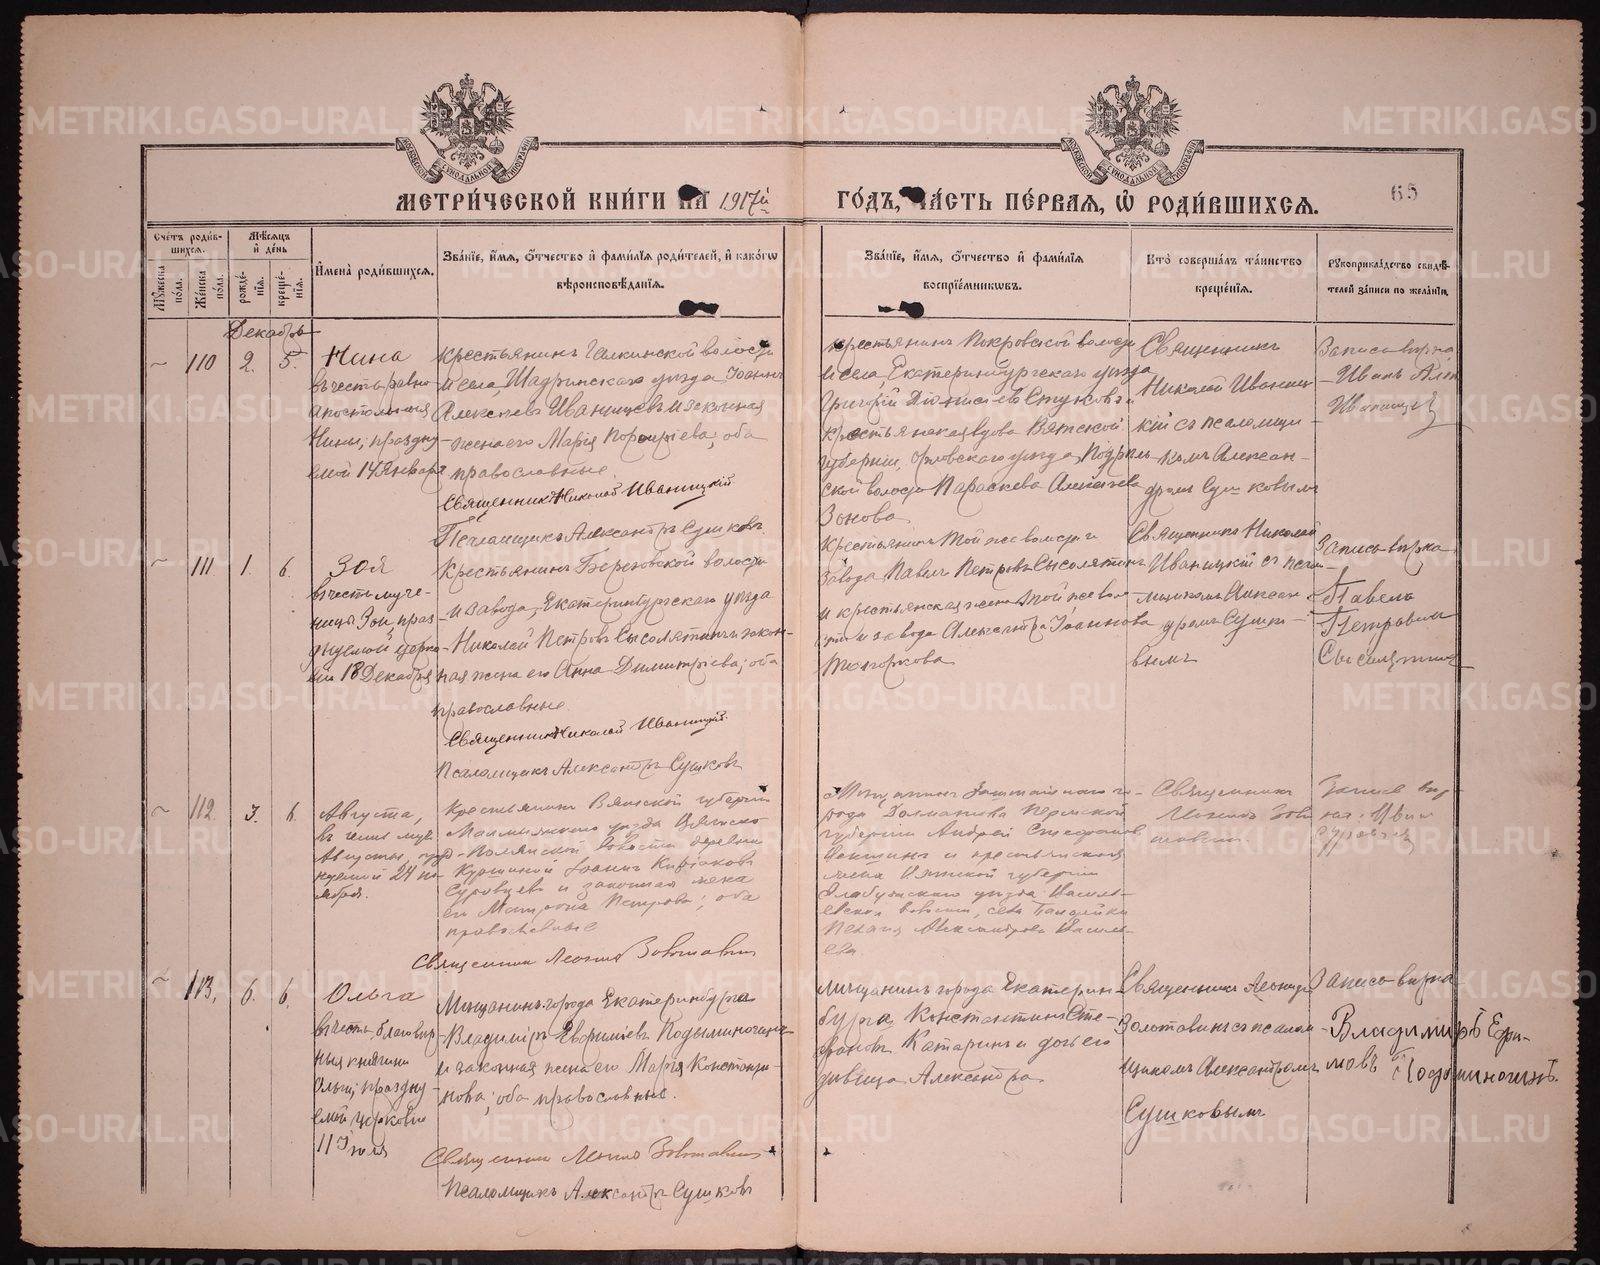 МЕТРИ́ЧЕСКОЙ КНИ́ГИ НА 1917й
ГО́ДЪ, ЧА́СТЬ ПЕ́РВАЯ, Ѡ҆ РОДИ́ВШИХСЯ.
65
Сче́тъ роди́в-
шихся.
Мꙋ́жеска по́ла.
Же́нска по́ла.
Мѣ́сяцъ и҆ де́нь
рожде́нїя.
креще́нїя.
И҆мена̀ роди́вшихся.
Зва́нїе, и҆́мя, ѻ҆́тчество и҆ фами́лїя роди́телей, и҆ како́гѡ
вѣроисповѣ́данїя.
Зва́нїе, и҆́мя, ѻ҆́тчество и҆ фами́лїя
воспрїе́мникѡвъ.
Кто̀ соверша́лъ та́инство
креще́нїя.
Рꙋкоприкла́дство свидѣ́-
телей за́писи по жела́нїю.
Декабрь
~ 110 2. 5.
Нина
въ честь равно
апостольныя
Нины, праздну
емой 14 Января
Крестьянинъ Галкинской волости
и села, Шадринскаго уѣзда Іоаннъ
Алексѣевъ Иванищевъ и законная
жена его Марія Порфиріева; оба
православные
Священникъ Николай Иваницкій
Псаломщикъ Александръ Сушковъ
Крестьянинъ Покровской волости
и села, Екатеринбургскаго уѣзда
Григорій Діонисіевъ Стуковъ и
крестьянская вдова Вятской
губерніи, Орловскаго уѣзда,
ской волости Параскева Алексѣева
Зонова
Священникъ
Николай Иваниц
кій съ псаломщи
комъ Алексан-
дромъ Сушковымъ
Запись вѣрна
Иванъ Алек
~ 111 1. 6.
Зоя
въ честь муче-
ницы Зои, праз
днуемой церко-
вію 18 Декабря
Крестьянинъ Березовской волости
и завода, Екатеринбургскаго уѣзда
Николай Петровъ Сысолятинъ и закон-
ная жена его Анна Димитріева; оба
православные
Священникъ Николай Иваницкій
Псаломщикъ Александръ Сушковъ
Крестьянинъ той же волости и
завода Павелъ Петровъ Сысолятинъ
и крестьянская жена той же воло
сти и завода Александра Іоаннова
Священникъ Николай
Иваницкій съ псало-
мщикомъ Алексан
дромъ Сушко-
вымъ
Запись вѣрна
Павелъ
Петровичъ
~ 112. 3. 6.
Августа,
въ честь муч
Августы, праз
днуемой 24 но
ября.
Крестьянинъ Вятской губерніи
Малмыжскаго уѣзда
Полянской волости деревни
Іоаннъ
Суровцевъ и законная жена
его Матрона Петрова; оба
православные
Священникъ Леонидъ Золотавинъ
Мѣщанинъ заштатнаго го-
рода Далматова Пермской
губерніи Андрей Стефановъ
и крестьянская
жена Вятской губерніи
Елабужскаго уѣзда Василь-
евской волости, села
Пелагія Александрова Василь-
ева
Священникъ
Леонидъ Золо
тавинъ.
Запись вѣр
на: Иванъ
~ 113. 6. 6.
Ольга
въ честь благовѣр
ныя княгини
Ольги, праздну-
емой церковію
11 Іюля
Мѣщанинъ города Екатеринбурга
Владиміръ Евфиміевъ Подъминогинъ
и законная жена его Марія Константи-
нова; оба православные.
Священникъ Леонидъ Золотавинъ
Псаломщикъ Александръ Сушковъ
Мѣщанинъ города Екатерин-
бурга Константинъ Сте-
фановъ Катаринъ и дочь его
дѣвица Александра
Священникъ Леонидъ
Золотавинъ съ псалом
щикомъ Александромъ
Сушковымъ
Запись вѣрна
Владимиръ Ефи-
мовъ Подминогинъ.
METRIKI.GASO-URAL.RU